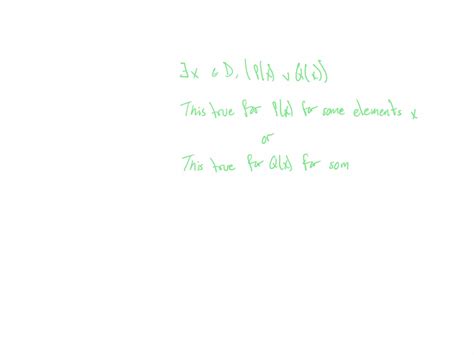 ∃x ∈ D, (P(x) ∨ Q(x))
This true for P(x) for some elements x
or
This true for Q(x) for som